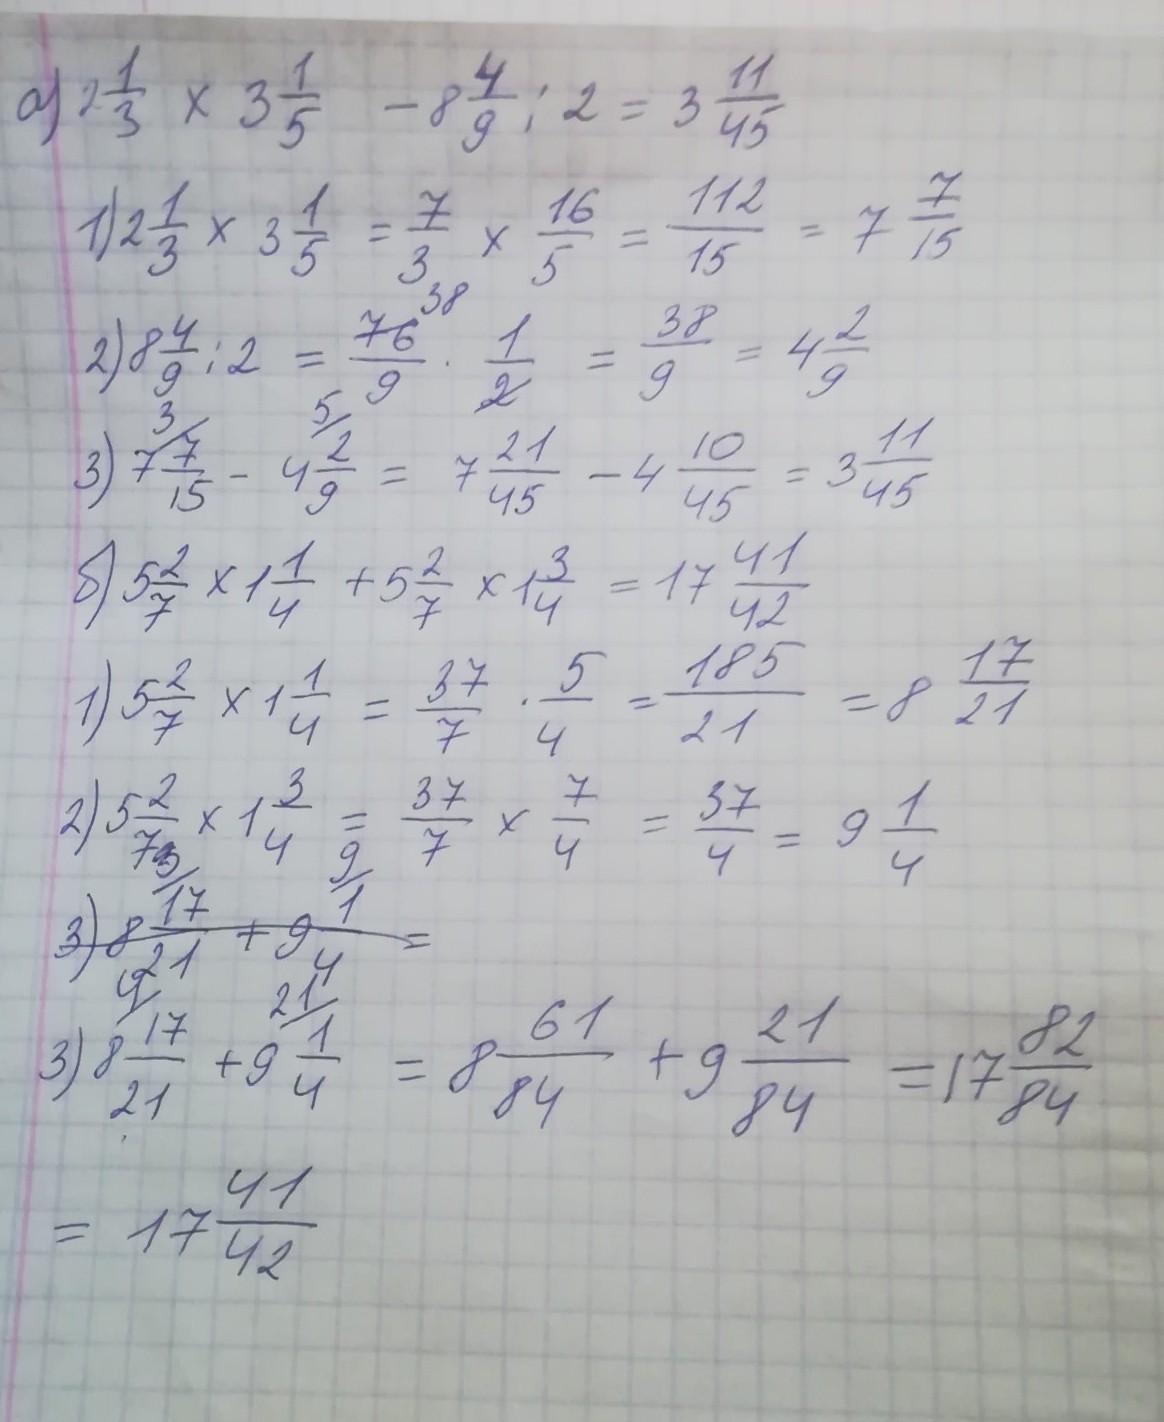 а) 2 1/3 × 3 1/5 - 8 4/9 : 2 = 3 11/45
1) 2 1/3 × 3 1/5 = 7/3 × 16/5 = 112/15 = 7 7/15
2) 8 4/9 : 2 = 76/9 38 · 1/2 = 38/9 = 4 2/9
3) 7 7/15 3/ - 4 2/9 5/ = 7 21/45 - 4 10/45 = 3 11/45
б) 5 2/7 × 1 1/4 + 5 2/7 × 1 3/4 = 17 41/42
1) 5 2/7 × 1 1/4 = 37/7 · 5/4 = 185/21 = 8 17/21
2) 5 2/7 × 1 3/4 = 37/7 × 7/4 = 37/4 = 9 1/4
3) 8 17/21 + 9 1/4 9/ =
3) 8 17/21 4/ + 9 1/4 21/ = 8 61/84 + 9 21/84 = 17 82/84
= 17 41/42